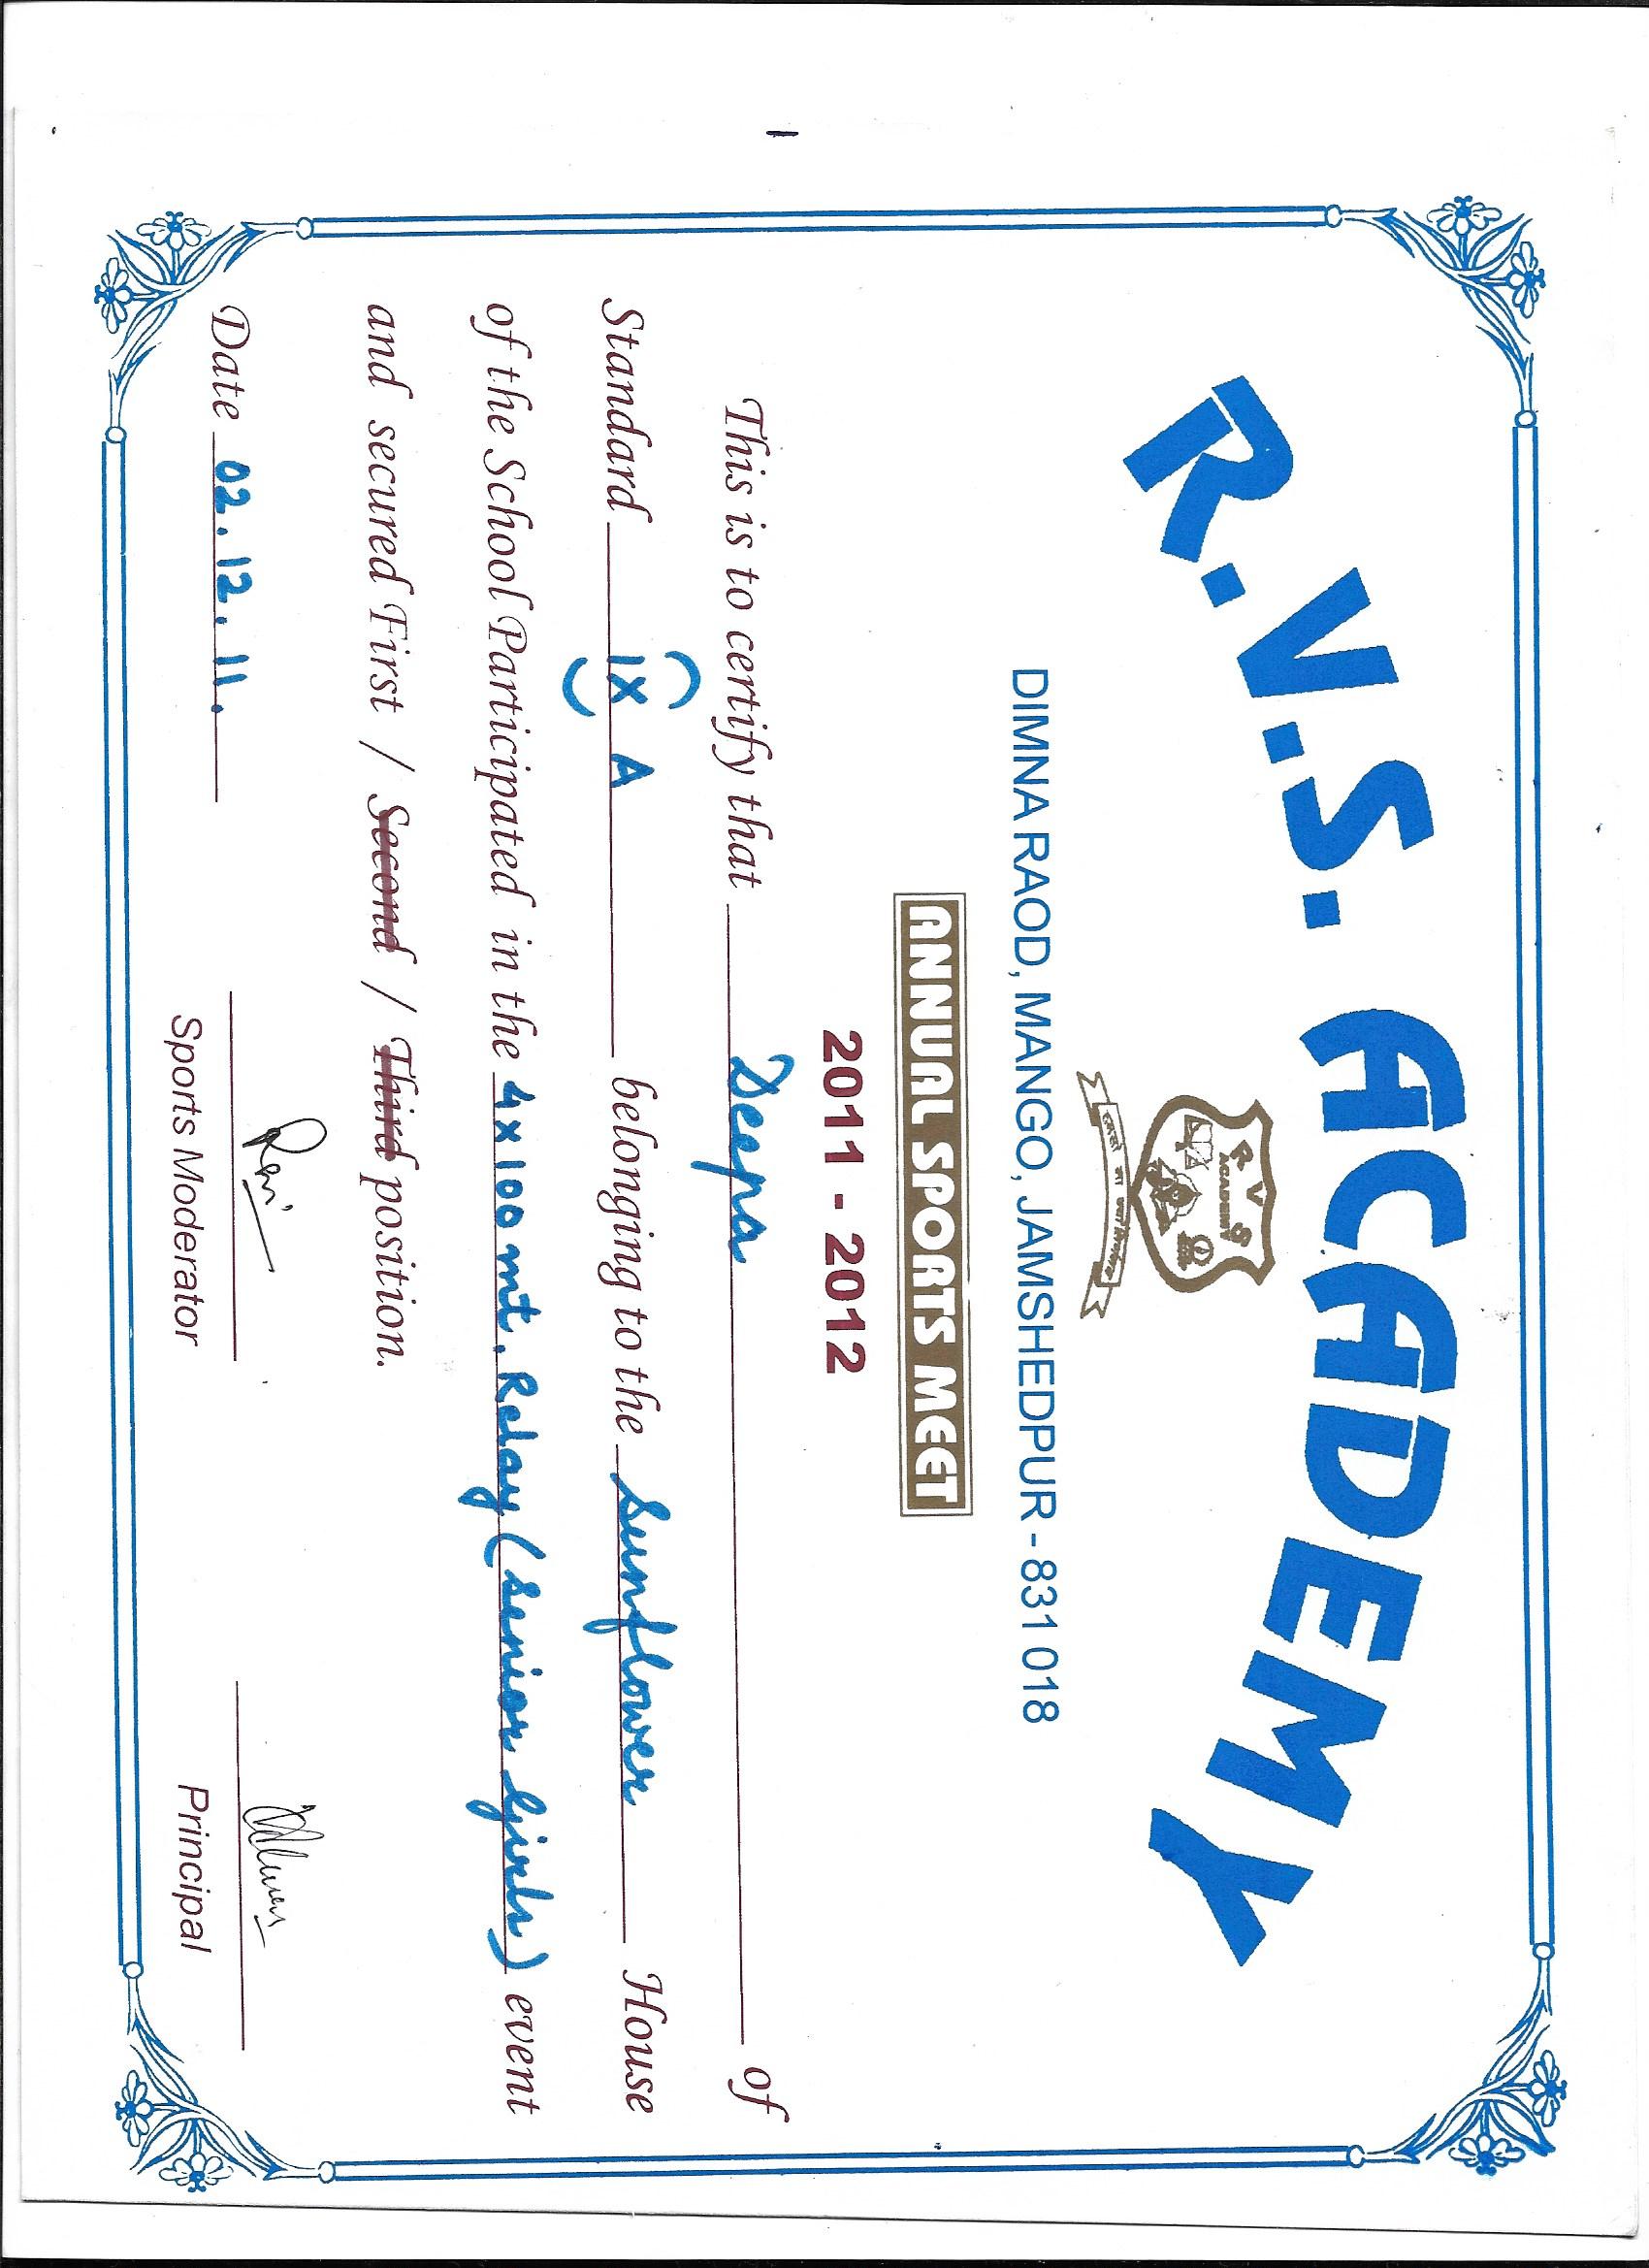 R.V.S. ACADEMY
R V S
ACADEMY
DIMNA RAOD, MANGO, JAMSHEDPUR - 831 018
ANNUAL SPORTS MEET
2011 - 2012
This is to certify that Deepa of
Standard (IX) A belonging to the Sunflower House
of the School Participated in the 4x100 mt. Relay (Senior Girls) event
and secured First / Second / Third position.
Date 02.12.11.
Sports Moderator
Principal